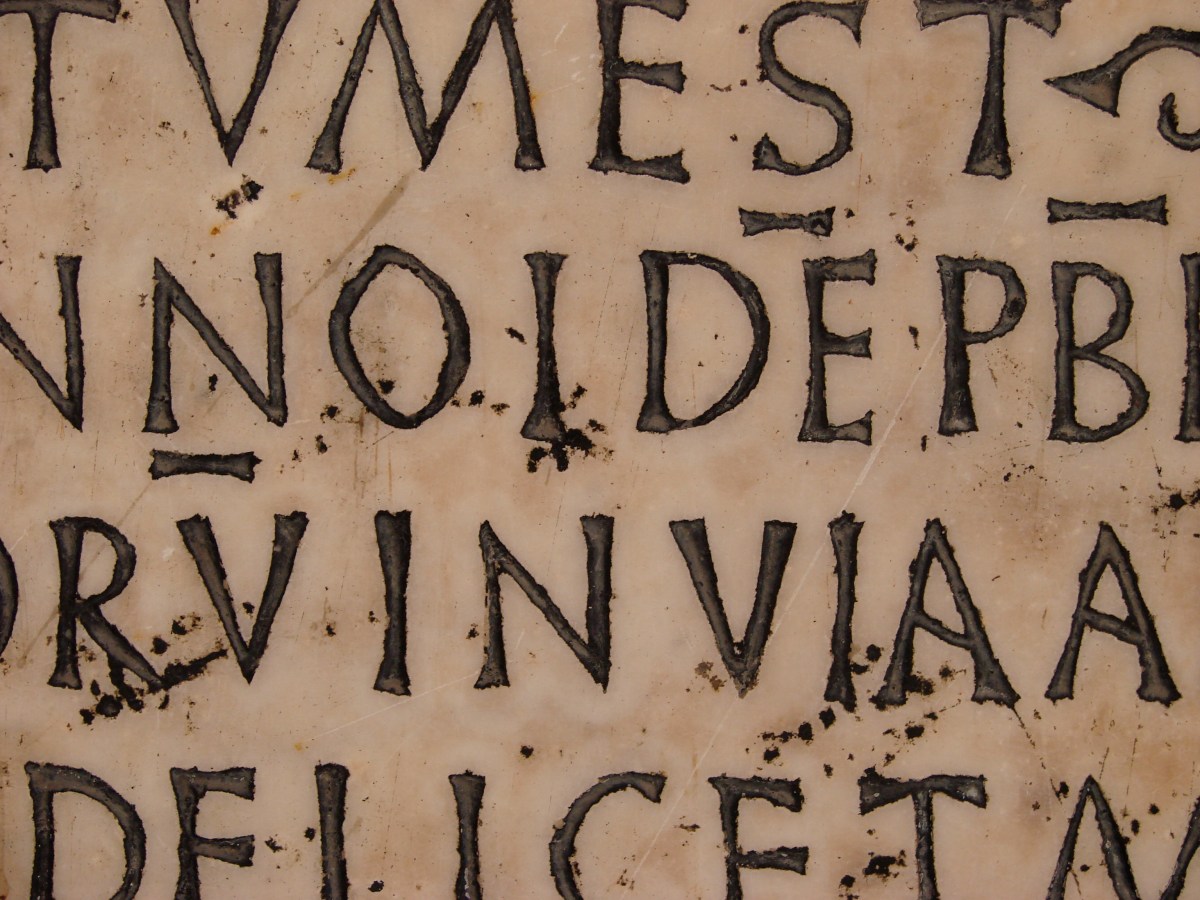 TVMEST
NNOIDĒPB̄I
ORVIN̄VIAA
DEIICETM